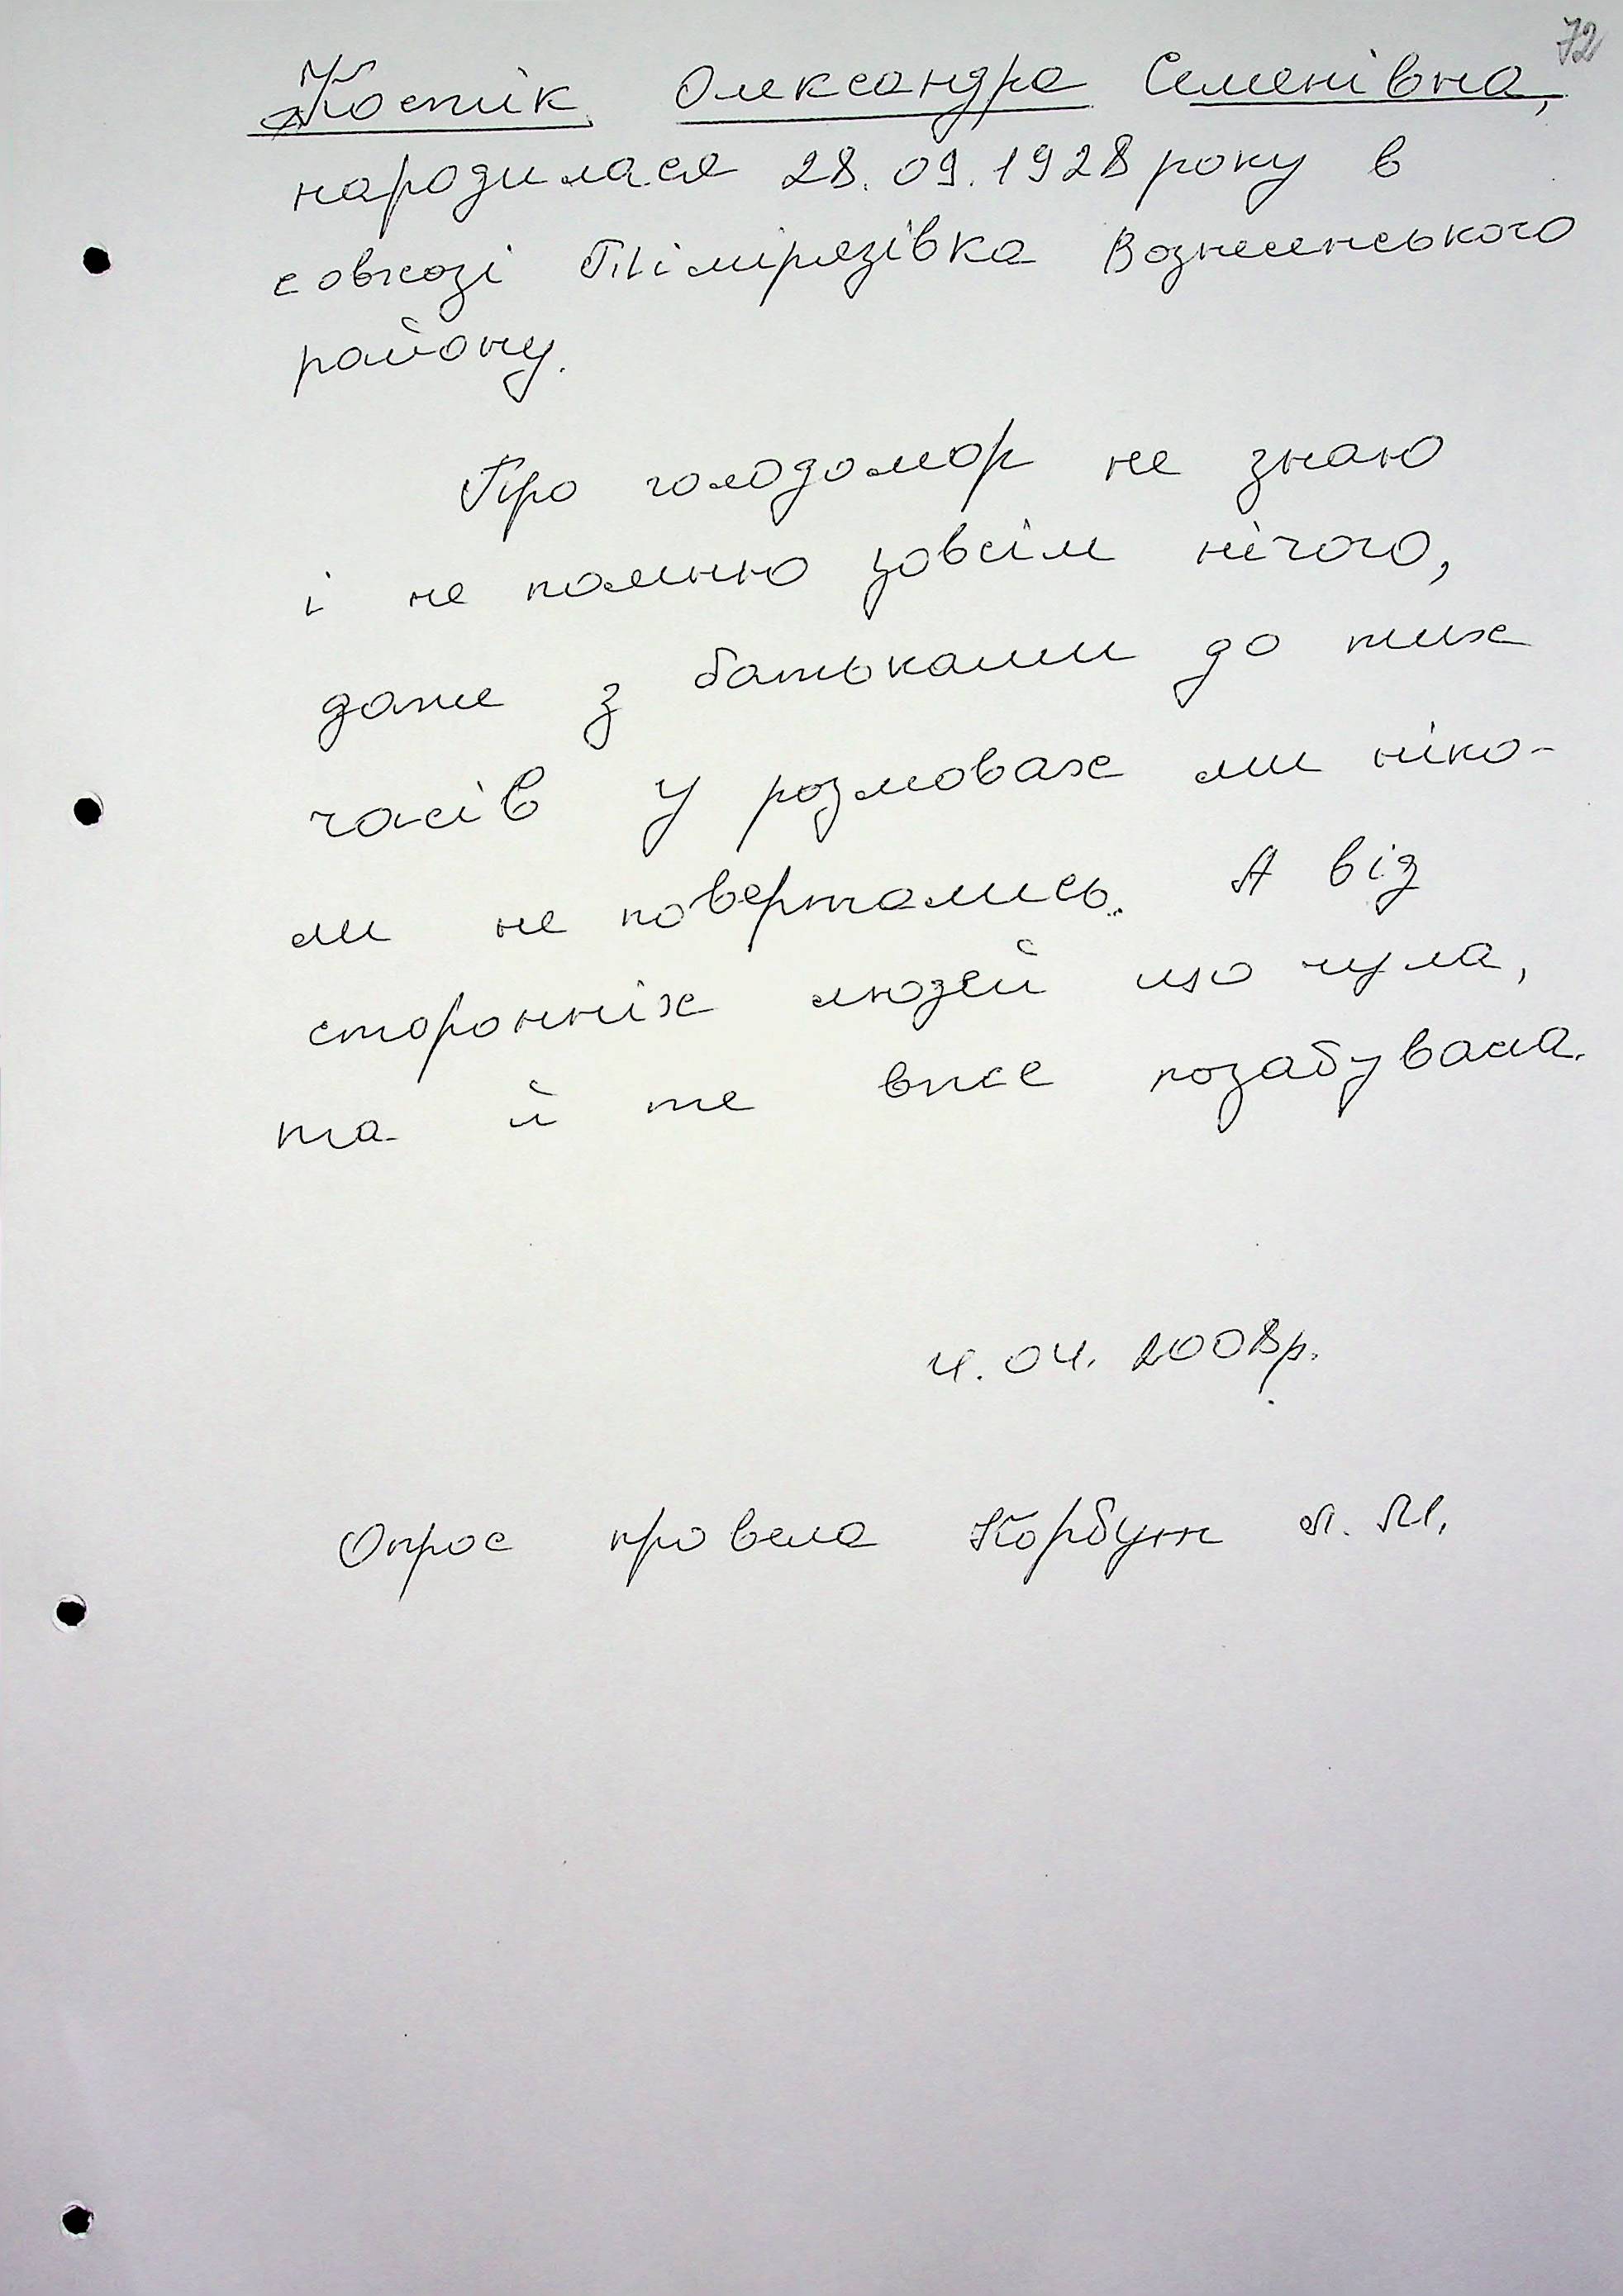 72
Костік Олександра Семенівна,
народилася 28.09.1928 року в
совхозі Тімірязівка Вознесенського
району.
Про голодомор не знаю
і не помню зовсім нічого,
даже з батьками до тих
часів у розмовах ми ніко-
ли не повертались. А від
сторонніх людей що чула,
та й те вже позабувала.
4.04.2008р.
Опрос провела Корбут Л. М.